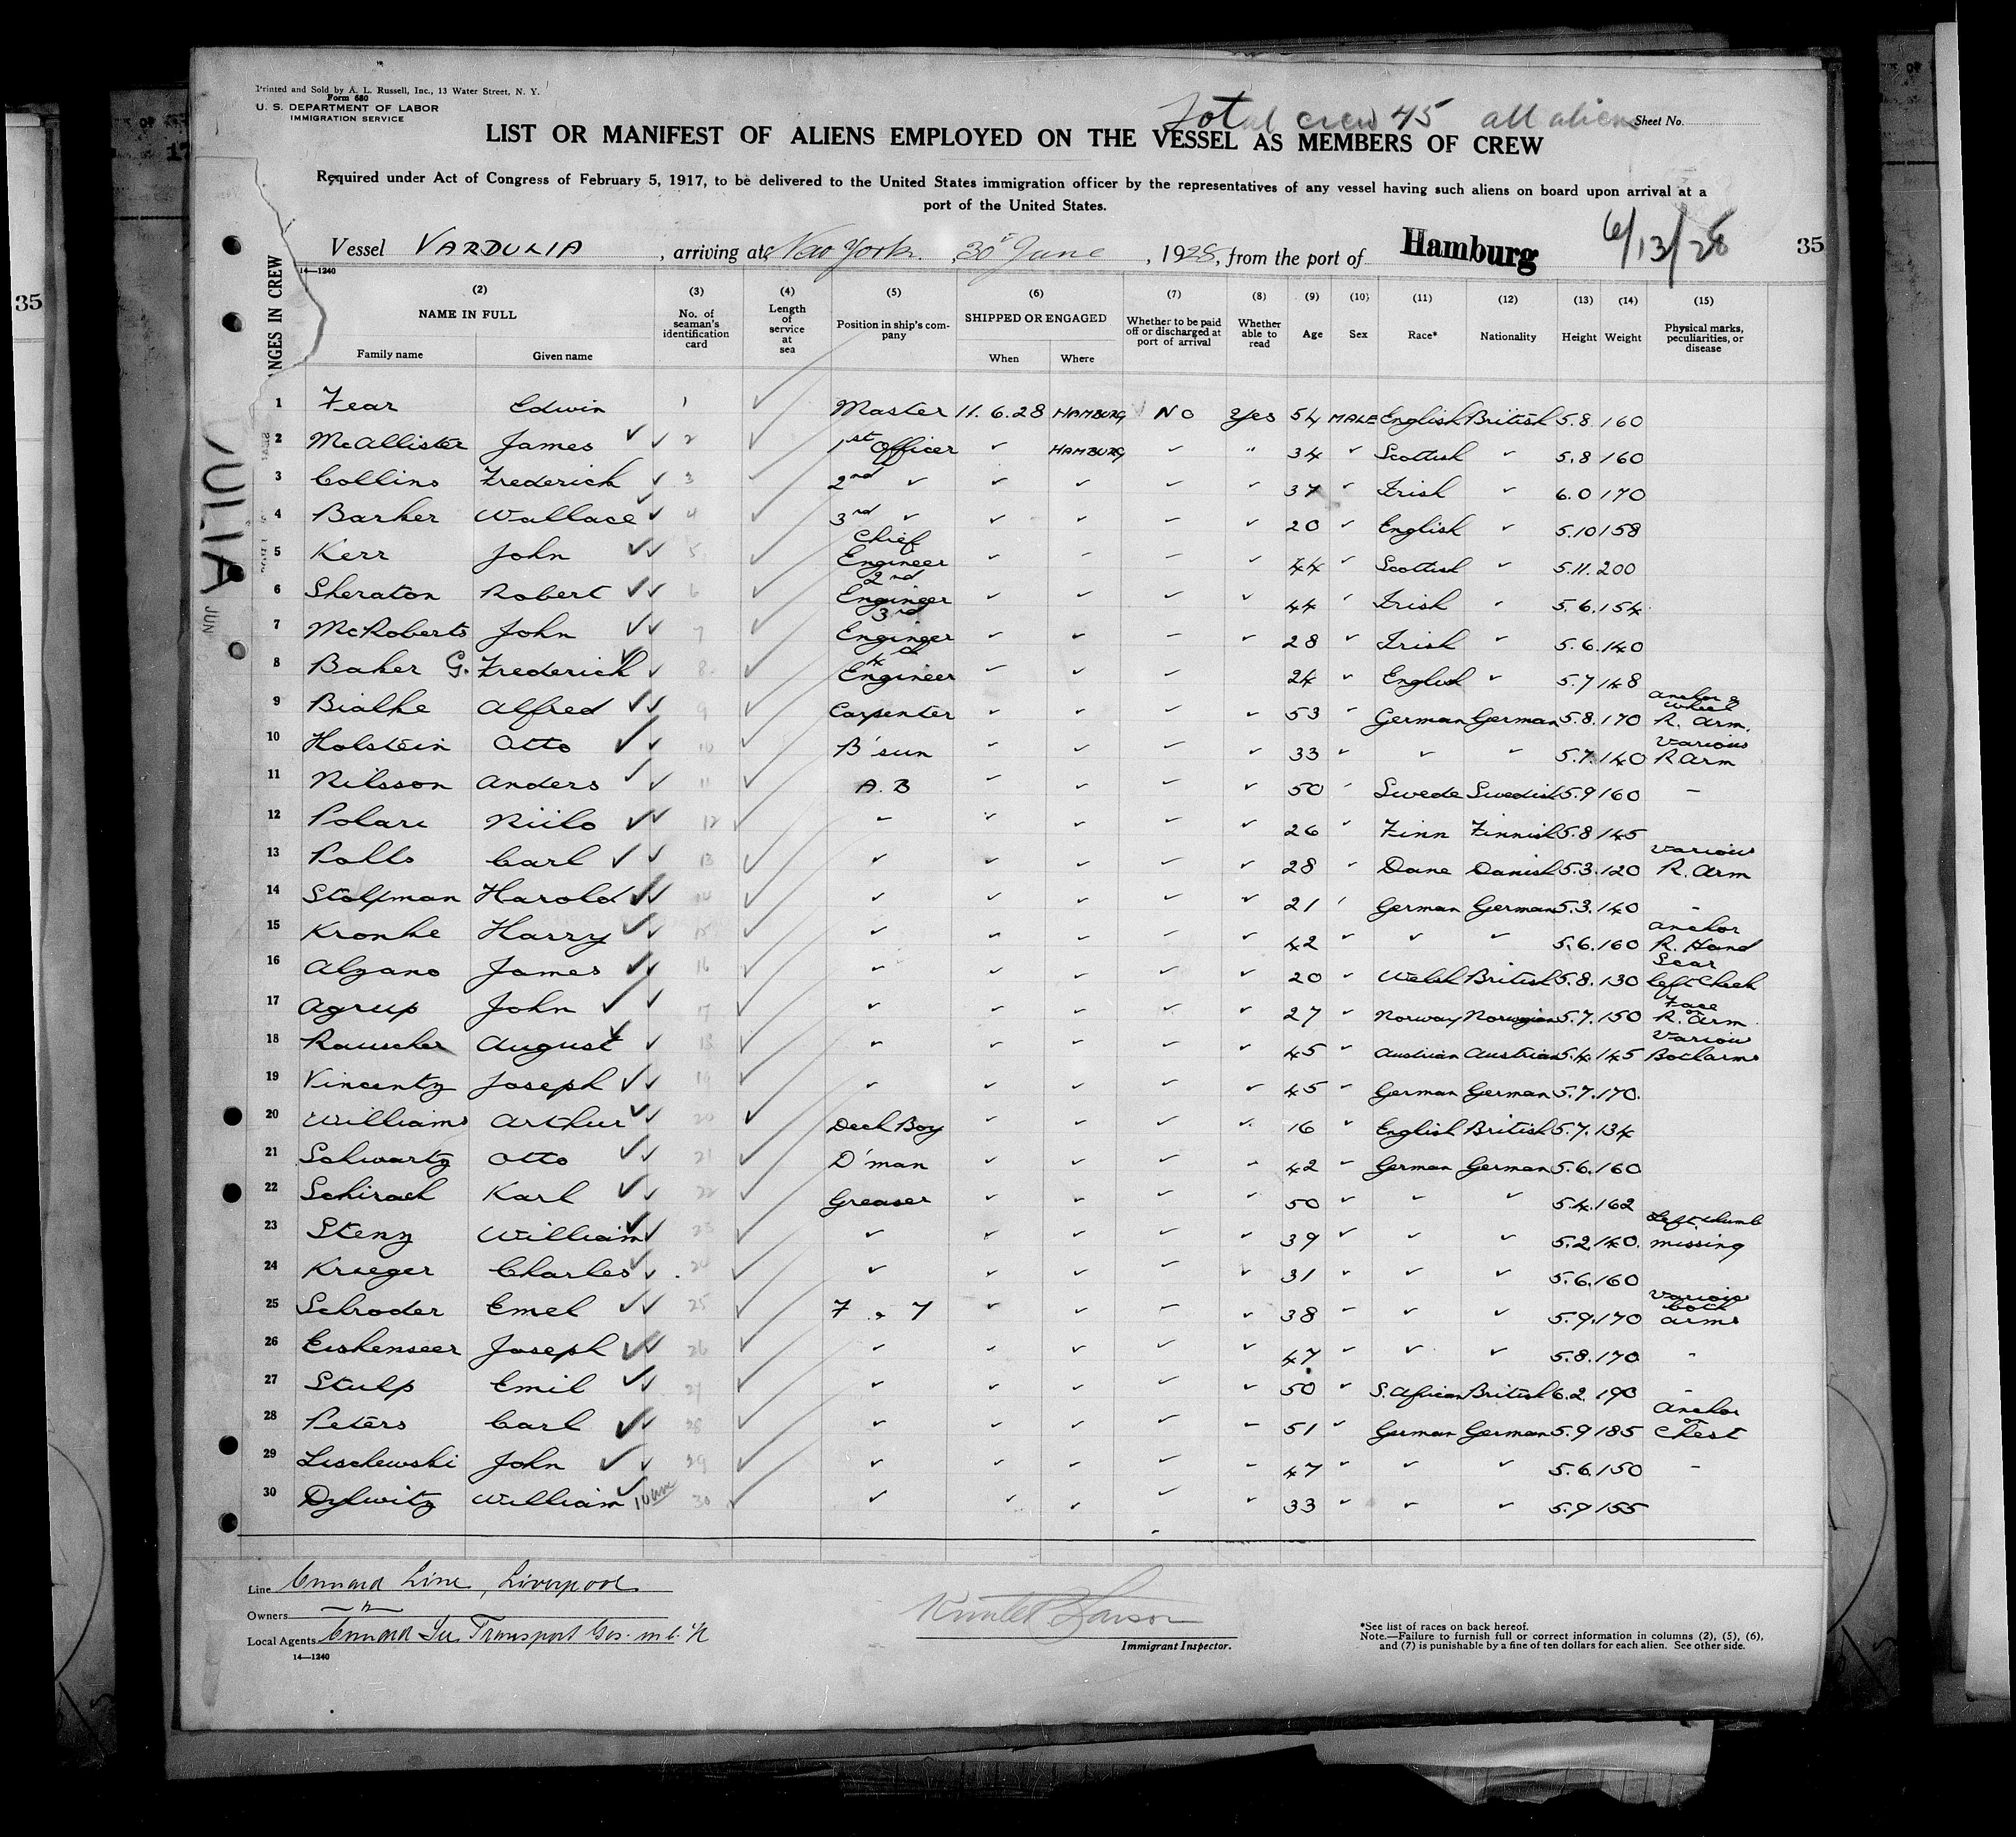 Printed and Sold by A. L. Russell, Inc., 13 Water Street, N. Y.
Form 680
U. S. DEPARTMENT OF LABOR
IMMIGRATION SERVICE
Total crew 45 all aliens
Sheet No.
LIST OR MANIFEST OF ALIENS EMPLOYED ON THE VESSEL AS MEMBERS OF CREW
Required under Act of Congress of February 5, 1917, to be delivered to the United States immigration officer by the representatives of any vessel having such aliens on board upon arrival at a
port of the United States.
Vessel VARDULIA, arriving at New York, 30 June, 1928, from the port of Hamburg 6/13/28 35
14—1240
NGES IN CREW
(2) (3) (4) (5) (6) (7) (8) (9) (10) (11) (12) (13) (14) (15)
NAME IN FULL
Family name Given name
No. of seaman's identification card
Length of service at sea
Position in ship's company
SHIPPED OR ENGAGED
When Where
Whether to be paid off or discharged at port of arrival
Whether able to read
Age Sex Race* Nationality Height Weight
Physical marks, peculiarities, or disease
1 Fear Edwin 1 Master 11.6.28 HAMBURG NO Yes 54 MALE English British 5.8. 160
2 McAllister James 2 1st Officer ✓ HAMBURG ✓ " 34 ✓ Scottish ✓ 5.8 160
3 Collins Frederick 3 2nd ✓ ✓ ✓ ✓ ✓ 37 ✓ Irish ✓ 6.0 170
4 Barker Wallace 4 3rd ✓ ✓ ✓ ✓ ✓ 20 ✓ English ✓ 5.10 158
5 Kerr John 5 Chief Engineer ✓ ✓ ✓ ✓ 44 ✓ Scottish ✓ 5.11. 200
6 Sheraton Robert 6 2nd Engineer ✓ ✓ ✓ ✓ 44 ✓ Irish ✓ 5.6. 154
7 McRoberts John 7 3rd Engineer ✓ ✓ ✓ ✓ 28 ✓ Irish 5.6. 140
8 Baker G. Frederick 8 Engineer ✓ ✓ ✓ 24 ✓ English ✓ 5.7 148
9 Bialke Alfred 9 Carpenter ✓ ✓ ✓ ✓ 53 ✓ German German 5.8. 170 Anchor & Wheel R. Arm.
10 Holstein Otto 10 B'sun ✓ ✓ ✓ ✓ 33 ✓ ✓ ✓ 5.7. 140 Various R Arm
11 Nilsson Anders 11 A.B ✓ ✓ ✓ ✓ 50 ✓ Swede Swedish 5.9 160 -
12 Polari Niilo 12 ✓ ✓ ✓ ✓ ✓ 26 ✓ Finn Finnish 5.8 145
13 Palls Carl 13 ✓ ✓ ✓ ✓ ✓ 28 ✓ Dane Danish 5.3. 120 Various R. Arm
14 Stolpman Harold 14 ✓ ✓ ✓ ✓ ✓ 21 ✓ German German 5.3. 140 -
15 Kronke Harry 15 ✓ ✓ ✓ ✓ ✓ 42 ✓ ✓ ✓ 5.6. 160 Anchor R. Hand
16 Alzano James 16 ✓ ✓ ✓ ✓ ✓ 20 ✓ Welsh British 5.8. 130 Scar left Cheek
17 Agrup John 17 ✓ ✓ ✓ ✓ ✓ 27 ✓ Norway Norwegian 5.7. 150 Face on R. Arm
18 Rauscher August 18 ✓ ✓ ✓ ✓ ✓ 45 ✓ Austrian Austrian 5.4. 145 Various Both arms
19 Vincentz Joseph 19 ✓ ✓ ✓ ✓ ✓ 45 ✓ German German 5.7. 170.
20 Williams Arthur 20 Deck Boy ✓ ✓ ✓ ✓ 16 ✓ English British 5.7. 134
21 Schwartz Otto 21 D'man ✓ ✓ ✓ ✓ 42 ✓ German German 5.6. 160
22 Schirach Karl 22 Greaser ✓ ✓ ✓ ✓ 50 ✓ ✓ ✓ 5.4. 162
23 Stenz William 23 ✓ ✓ ✓ ✓ ✓ 39 ✓ ✓ ✓ 5.2. 140. Left thumb missing
24 Krueger Charles 24 ✓ ✓ ✓ ✓ ✓ 31 ✓ ✓ ✓ 5.6. 160
25 Schroder Emel 25 F. & T ✓ ✓ ✓ ✓ 38 ✓ ✓ ✓ 5.9. 170 Various both arms
26 Eishenseer Joseph 26 ✓ ✓ ✓ ✓ ✓ 47 ✓ ✓ ✓ 5.8. 170 -
27 Stulp Emil 27 ✓ ✓ ✓ ✓ ✓ 50 ✓ S. African British 6.2. 190 -
28 Peters Carl 28 ✓ ✓ ✓ ✓ ✓ 51 ✓ German German 5.9 185 Anchor on Chest
29 Lischewski John 29 ✓ ✓ ✓ ✓ ✓ 47 ✓ ✓ ✓ 5.6. 150 -
30 Dylwitz William 30 ✓ ✓ ✓ ✓ ✓ 33 ✓ ✓ ✓ 5.9 155
Line Cunard Line, Liverpool
Owners —"—
Local Agents Cunard See Transport Ges. m.b.H
14—1240
Immigrant Inspector.
*See list of races on back hereof.
Note.—Failure to furnish full or correct information in columns (2), (5), (6),
and (7) is punishable by a fine of ten dollars for each alien. See other side.
35
ULIA
JUN